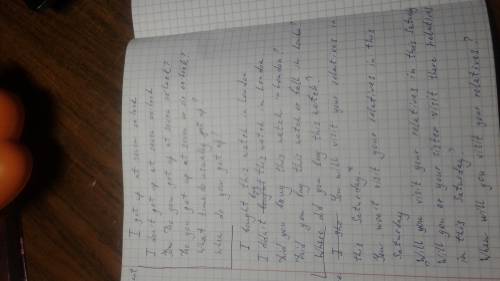 I get up at seven oclock
I don't get up at seven oclock
Do you get up at seven oclock?
Do you get up at seven or six oclock?
What time do usually get up?
When do you get up?
I bought this watch in London
I didn't buy this watch in London
Did you buy this watch in London?
Did you buy this watch or ball in London?
Where did you buy this watch?
You will visit your relatives in
this Saturday
You won't visit your relatives in this
Saturday
Will you visit your relatives in this Saturday
Will you or your sister visit their relatives
in this Saturday?
When will you visit your relatives?